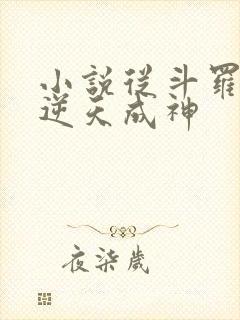 小說從斗羅
逆天成神
夜柒歲